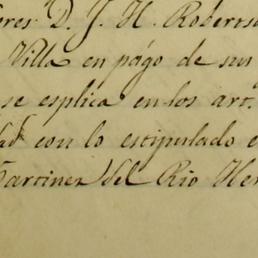 ores D. J. H. Roberts
Villa en págo de sus
se esplica en los art.
con lo estipulado e
Martinez del Rio Her